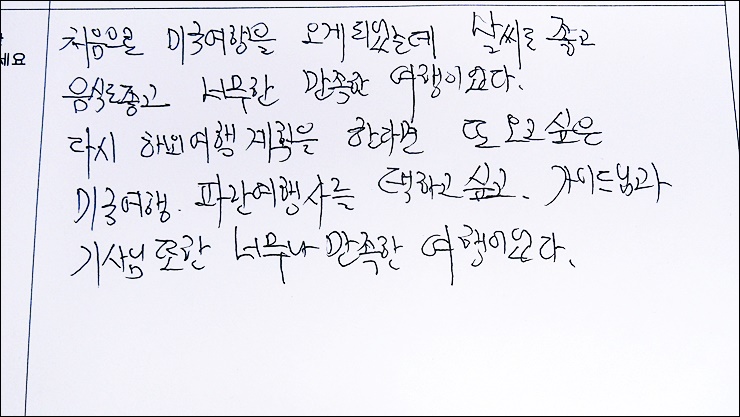 세요
처음으로 미국여행을 오게되었는데 날씨도 좋고
음식도좋고 너무나 만족한 여행이었다.
다시 해외여행계획을 한다면 또 오고싶은
미국여행. 파란여행사를 택하고싶고. 가이드님과
기사님 또한 너무나 만족한 여행이었다.